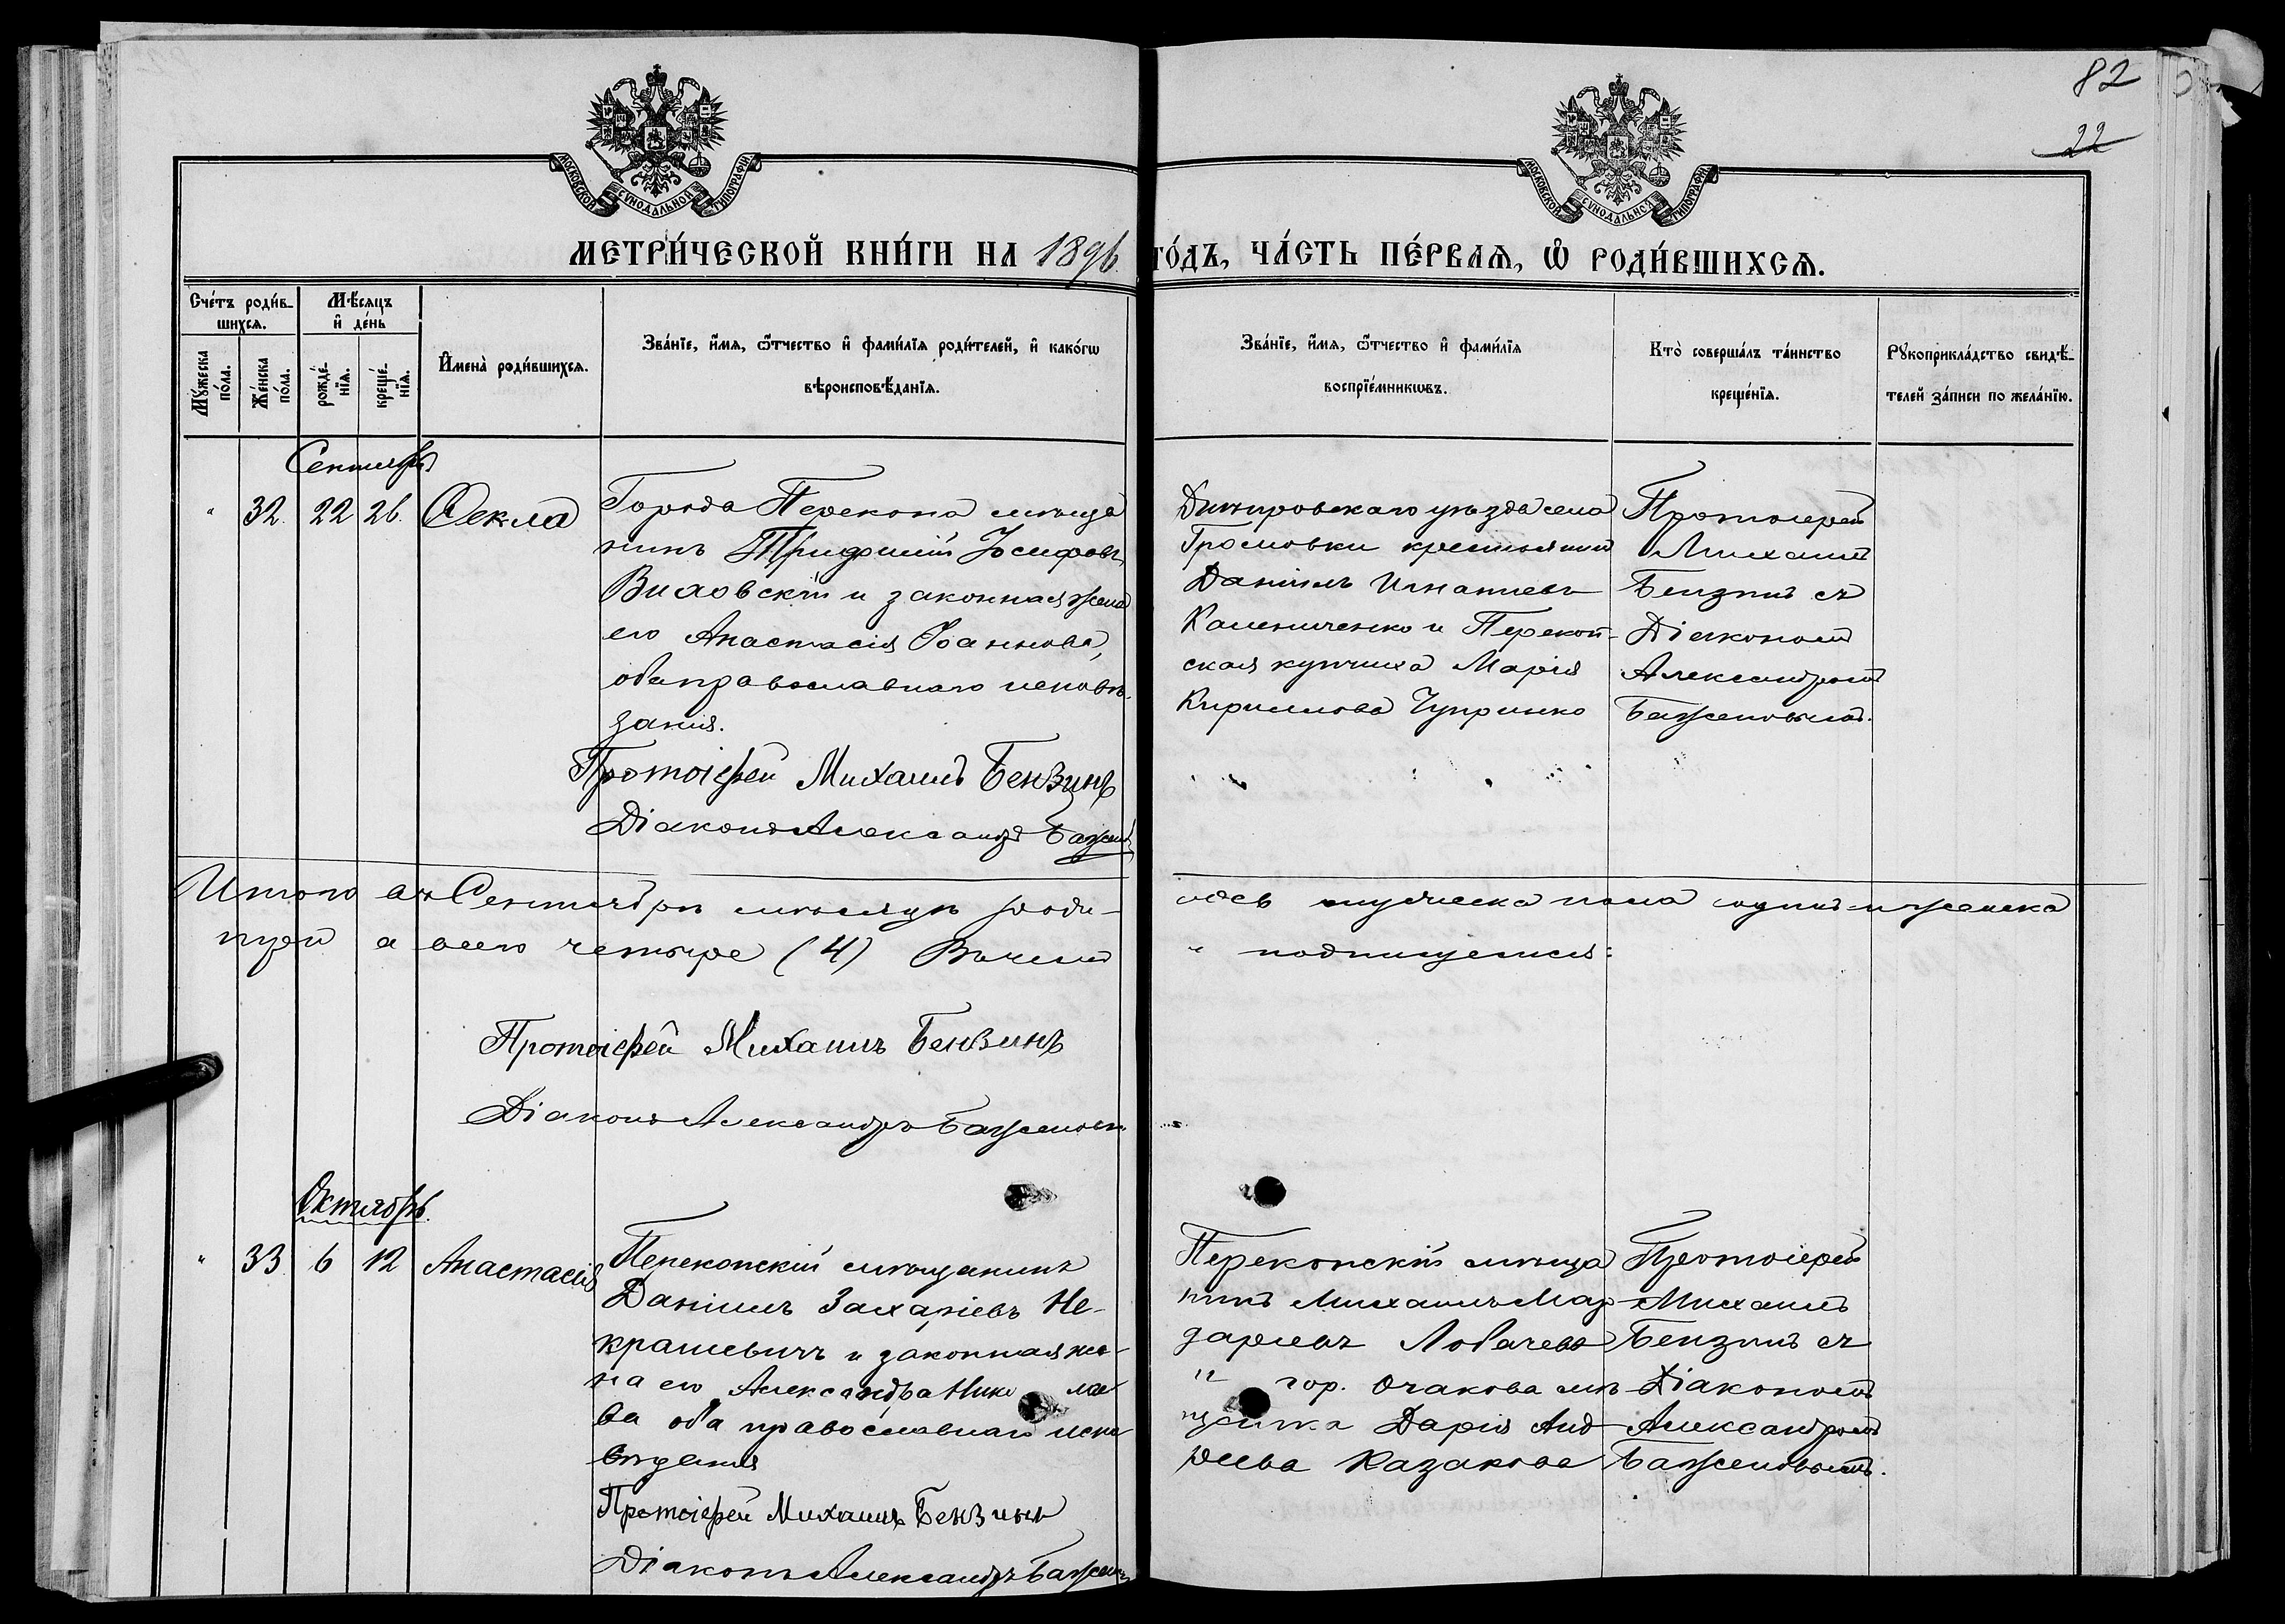 82
22
МОСКОВСКОЙ СУНОДАЛЬНОЙ ТИПОГРАФІИ
МОСКОВСКОЙ СУНОДАЛЬНОЙ ТИПОГРАФІИ
МЕТРИ́ЧЕСКОЙ КНИ́ГИ НА 1896 ГО́ДЪ, ЧА́СТЬ ПЕ́РВАѦ, Ѡ РОДИ́ВШИХСѦ.
Сче́тъ роди́в-
шихсѧ.
Мѣ́сѧцъ
и҆ де́нь
Мꙋ́жеска
по́ла.
Же́нска
по́ла.
рожде́-
нїѧ.
креще́-
нїѧ.
И҆мена̀ роди́вшихсѧ.
Зва́нїе, и҆́мѧ, ѻ҆́тчество и҆ фами́лїѧ роди́телей, и҆ како́гѡ
вѣроисповѣ́данїѧ.
Зва́нїе, и҆́мѧ, ѻ҆́тчество и҆ фами́лїѧ
воспрїе́мникѡвъ.
Кто̀ соверша́лъ та́инство
креще́нїѧ.
Рꙋкоприкла́дство свидѣ́-
телей за́писи по жела́нїю.
Сентябрь
" 32. 22 26. Ѳекла
Города Перекопа мѣща
нинъ Трифилій Іосифовъ
Виховскій и законная жена
его Анастасія Іоаннова,
оба православнаго исповѣ-
данія.
Протоіерей Михаилъ Бензинъ
Діаконъ Александръ Баженовъ
Днѣпровскаго уѣзда села
Громовки крестьянинъ
Даніилъ Игнатіевъ
Калениченко и Перекоп-
ская купчиха Марія
Кириллова Чупринко
Протоіерей
Михаилъ
Бензинъ съ
Діакономъ
Александромъ
Баженовымъ.
Итого въ Сентябрѣ мѣсяцѣ роди-
лось мужеска пола одинъ и женска
три а всего четыре (4) В чемъ
и подписуемся:
Протоіерей Михаилъ Бензинъ
Діаконъ Александръ Баженовъ
Октябрь.
" 33 6 12 Анастасія
Перекопскій мѣщанинъ
Даніилъ Захаріевъ Не-
крашевичъ и законная же-
на его Александра Никола-
ева оба православнаго испо
вѣданія
Протоіерей Михаилъ Бензинъ
Діаконъ Александръ Баженовъ
Перекопскій мѣща
нинъ Михаилъ Маз
даріевъ Лобачевъ
и гор. Очакова мѣ
щанка Дарія Анд
реева Казакова
Протоіерей
Михаилъ
Бензинъ съ
Діакономъ
Александромъ
Баженовымъ.